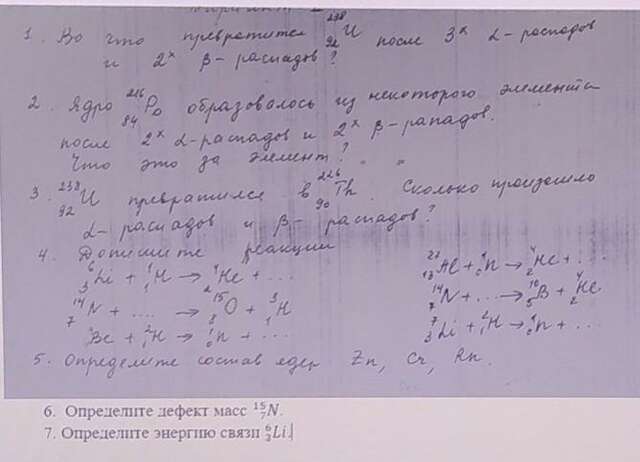 1. Во что превратится ²³⁸₉₂U после 3ˣ α-распадов
и 2ˣ β-распадов?
2. Ядро ²¹⁶₈₄Po образовалось из некоторого элемента
после 2ˣ α-распадов и 2ˣ β-рападов.
Что это за элемент?
3. ²³⁸₉₂U превратился в ²²⁶₉₀Th. Сколько произошло
α-распадов и β-распадов?
4. Допишите реакции
⁶₃Li + ¹₁H → ⁴₂He + ...
²⁷₁₃Al + ¹₀n → ⁴₂He + ...
¹⁴₇N + .... → ¹⁵₈O + ³₁H
¹⁴₇N + ... → ¹⁰₅B + ⁴₂He
Be + ²₁H → ¹₀n + ....
⁷₃Li + ²₁H → ¹₀n + ...
5. Определите состав ядер Zn, Cr, Rn.
6. Определите дефект масс ¹⁵₇N.
7. Определите энергию связи ⁶₃Li.